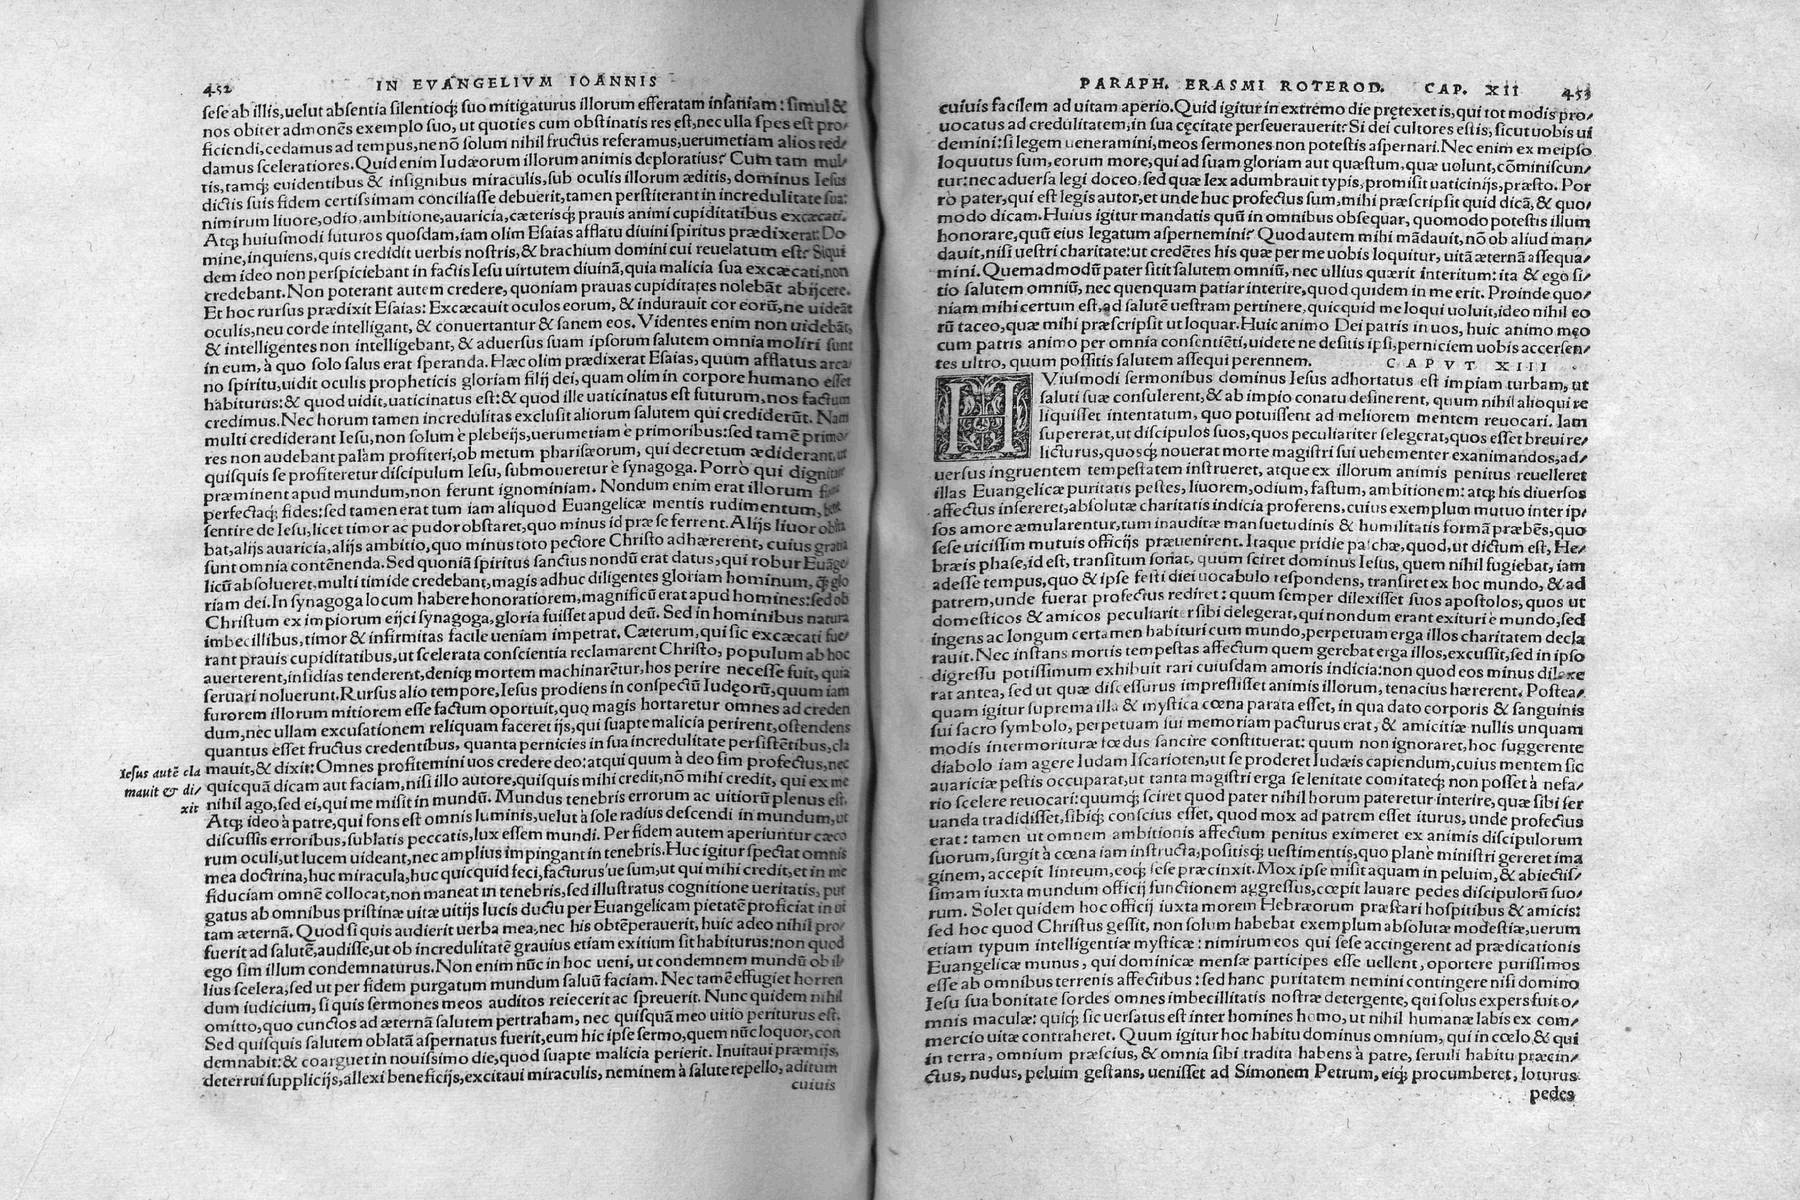 452 IN EVANGELIVM IOANNIS
sese ab illis, uelut absentia silentioq́; suo mitigaturus illorum efferatam insaniam: simul &
nos obiter admonẽs exemplo suo, ut quoties cum obstinatis res est, nec ulla spes est pro/
ficiendi, cedamus ad tempus, ne nõ solum nihil fructus referamus, uerumetiam alios red/
damus sceleratiores. Quid enim Iudæorum illorum animis deploratius? Cum tam mul/
tis, tamq́; euidentibus & insignibus miraculis, sub oculis illorum æditis, dominus Iesus
dictis suis fidem certissimam conciliasse debuerit, tamen perstiterant in incredulitate sua:
nimirum liuore, odio, ambitione, auaricia, cæterisq́; prauis animi cupiditatibus excæcati.
Atq; huiusmodi futuros quosdam, iam olim Esaias afflatu diuini spiritus prædixerat: Do
mine, inquiens, quis credidit uerbis nostris, & brachium domini cui reuelatum est? Siqui
dem ideo non perspiciebant in factis Iesu uirtutem diuinã, quia malicia sua excæcati, non
credebant. Non poterant autem credere, quoniam prauas cupiditates nolebãt abijcere.
Et hoc rursus prædixit Esaias: Excæcauit oculos eorum, & indurauit cor eorũ, ne uideãt
oculis, neu corde intelligant, & conuertantur & sanem eos. Videntes enim non uidebãt,
& intelligentes non intelligebant, & aduersus suam ipsorum salutem omnia moliri sunt
in eum, à quo solo salus erat speranda. Hæc olim prædixerat Esaias, quum afflatus arca
no spiritu, uidit oculis propheticis gloriam filij dei, quam olim in corpore humano esset
habiturus: & quod uidit, uaticinatus est: & quod ille uaticinatus est futurum, nos factum
credimus. Nec horum tamen incredulitas exclusit aliorum salutem qui crediderũt. Nam
multi crediderant Iesu, non solum è plebeijs, uerumetiam è primoribus: sed tamẽ primo/
res non audebant palàm profiteri, ob metum pharisæorum, qui decretum ædiderant, ut
quisquis se profiteretur discipulum Iesu, submoueretur è synagoga. Porrò qui dignitate
præminent apud mundum, non ferunt ignominiam. Nondum enim erat illorum
perfectaq́; fides: sed tamen erat tum iam aliquod Euangelicæ mentis rudimentum,
sentire de Iesu, licet timor ac pudor obstaret, quo minus id præ se ferrent. Alijs liuor obsta
bat, alijs auaricia, alijs ambitio, quo minus toto pectore Christo adhærerent, cuius gratia
sunt omnia contẽnenda. Sed quoniã spiritus sanctus nondũ erat datus, qui robur Euãge
licũ absolueret, multi timide credebant, magis adhuc diligentes gloriam hominum, q̃ glo
riam dei. In synagoga locum habere honoratiorem, magnificũ erat apud homines: sed ob
Christum ex impiorum eijci synagoga, gloria fuisset apud deũ. Sed in hominibus natura
imbecillibus, timor & infirmitas facile ueniam impetrat. Cæterum, qui sic excæcati fue/
rant prauis cupiditatibus, ut scelerata conscientia reclamarent Christo, populum ab hoc
auerterent, insidias tenderent, deniq; mortem machinarẽtur, hos perire necesse fuit, quia
seruari noluerunt. Rursus alio tempore, Iesus prodiens in conspectũ Iudęorũ, quum iam
furorem illorum mitiorem esse factum oportuit, quo magis hortaretur omnes ad creden
dum, nec ullam excusationem reliquam faceret ijs, qui suapte malicia perirent, ostendens
quantus esset fructus credentibus, quanta pernicies in sua incredulitate persistẽtibus, cla
Iesus autẽ cla
mauit & di/
xit
mauit, & dixit: Omnes profitemini uos credere deo: atqui quum à deo sim profectus, nec
quicquã dicam aut faciam, nisi illo autore, quisquis mihi credit, nõ mihi credit, qui ex me
nihil ago, sed ei, qui me misit in mundũ. Mundus tenebris errorum ac uitiorũ plenus est.
Atq; ideo à patre, qui fons est omnis luminis, uelut à sole radius descendi in mundum, ut
discussis erroribus, sublatis peccatis, lux essem mundi. Per fidem autem aperiuntur cæco
rum oculi, ut lucem uideant, nec amplius impingant in tenebris. Huc igitur spectat omnis
mea doctrina, huc miracula, huc quicquid feci, facturus'ue sum, ut qui mihi credit, et in me
fiduciam omnẽ collocat, non maneat in tenebris, sed illustratus cognitione ueritatis, pur
gatus ab omnibus pristinæ uitæ uitijs lucis ductu per Euangelicam pietatẽ proficiat in ui
tam æternã. Quod si quis audierit uerba mea, nec his obtẽperauerit, huic adeo nihil pro/
fuerit ad salutẽ, audisse, ut ob incredulitatẽ grauius etiam exitium sit habiturus: non quod
ego sim illum condemnaturus. Non enim nũc in hoc ueni, ut condemnem mundũ ob il/
lius scelera, sed ut per fidem purgatum mundum saluũ faciam. Nec tamẽ effugiet horren
dum iudicium, si quis sermones meos auditos reiecerit ac spreuerit. Nunc quidem nihil
omitto, quo cunctos ad æternã salutem pertraham, nec quisquã meo uitio periturus est.
Sed quisquis salutem oblatã aspernatus fuerit, eum hic ipse sermo, quem nũc loquor, con
demnabit: & coarguet in nouissimo die, quod suapte malicia perierit. Inuitaui præmijs,
deterrui supplicijs, allexi beneficijs, excitaui miraculis, neminem à salute repello, aditum
cuiuis
PARAPH. ERASMI ROTEROD. CAP. XII 453
cuiuis facilem ad uitam aperio. Quid igitur in extremo die prętexet is, qui tot modis pro/
uocatus ad credulitatem, in sua cęcitate perseuerauerit? Si dei cultores estis, sicut uobis ui
demini: si legem ueneramini, meos sermones non potestis aspernari. Nec enim ex meipso
loquutus sum, eorum more, qui ad suam gloriam aut quæstum, quæ uolunt, cõminiscun/
tur: nec aduersa legi doceo, sed quæ lex adumbrauit typis, promisit uaticinijs, præsto. Por
rò pater, qui est legis autor, et unde huc profectus sum, mihi præscripsit quid dicã, & quo/
modo dicam. Huius igitur mandatis quũ in omnibus obsequar, quomodo potestis illum
honorare, quũ eius legatum aspernemini? Quod autem mihi mãdauit, nõ ob aliud man/
dauit, nisi uestri charitate: ut credẽtes his quæ per me uobis loquitur, uitã æternã assequa/
mini. Quemadmodũ pater sitit salutem omniũ, nec ullius quærit interitum: ita & ego si/
tio salutem omniũ, nec quenquam patiar interire, quod quidem in me erit. Proinde quo/
niam mihi certum est, ad salutẽ uestram pertinere, quicquid me loqui uoluit, ideo nihil eo
rũ taceo, quæ mihi præscripsit ut loquar. Huic animo Dei patris in uos, huic animo meo
cum patris animo per omnia consentiẽti, uidete ne desitis ipsi, perniciem uobis accersen/
tes ultro, quum possitis salutem assequi perennem. CAPVT XIII.
HViusmodi sermonibus dominus Iesus adhortatus est impiam turbam, ut
saluti suæ consulerent, & ab impio conatu desinerent, quum nihil alioqui re
liquisset intentatum, quo potuissent ad meliorem mentem reuocari. Iam
supererat, ut discipulos suos, quos peculiariter selegerat, quos esset breui re/
licturus, quosq; nouerat morte magistri sui uehementer exanimandos, ad/
uersus ingruentem tempestatem instrueret, atque ex illorum animis penitus reuelleret
illas Euangelicæ puritatis pestes, liuorem, odium, fastum, ambitionem: atq; his diuersos
affectus insereret, absolutæ charitatis indicia proferens, cuius exemplum mutuo inter ip/
sos amore æmularentur, tum inauditæ mansuetudinis & humilitatis formã præbẽs, quo
sese uicissim mutuis officijs præuenirent. Itaque pridie paschæ, quod, ut dictum est, He/
bræis phase, id est, transitum sonat, quum sciret dominus Iesus, quem nihil fugiebat, iam
adesse tempus, quo & ipse festi diei uocabulo respondens, transiret ex hoc mundo, & ad
patrem, unde fuerat profectus rediret: quum semper dilexisset suos apostolos, quos ut
domesticos & amicos peculiariter sibi delegerat, qui nondum erant exituri è mundo, sed
ingens ac longum certamen habituri cum mundo, perpetuam erga illos charitatem decla
rauit. Nec instans mortis tempestas affectum quem gerebat erga illos, excussit, sed in ipso
digressu potissimum exhibuit rari cuiusdam amoris indicia: non quod eos minus dilexe
rat antea, sed ut quæ discessurus impressisset animis illorum, tenacius hærerent. Postea/
quam igitur suprema illa & mystica cœna parata esset, in qua dato corporis & sanguinis
sui sacro symbolo, perpetuam sui memoriam pacturus erat, & amicitiæ nullis unquam
modis intermorituræ fœdus sancire constituerat: quum non ignoraret, hoc suggerente
diabolo iam agere Iudam Iscarioten, ut se proderet Iudæis capiendum, cuius mentem sic
auariciæ pestis occuparat, ut tanta magistri erga se lenitate comitateq; non posset à nefa/
rio scelere reuocari: quumq́; sciret quod pater nihil horum pateretur interire, quæ sibi ser
uanda tradidisset, sibiq́; conscius esset, quod mox ad patrem esset iturus, unde profectus
erat: tamen ut omnem ambitionis affectum penitus eximeret ex animis discipulorum
suorum, surgit à cœna iam instructa, positisq́; uestimentis, quo planè ministri gereret ima
ginem, accepit linteum, eoq́; sese præcinxit. Mox ipse misit aquam in peluim, & abiectis/
simam iuxta mundum officij functionem aggressus, cœpit lauare pedes discipulorũ suo/
rum. Solet quidem hoc officij iuxta morem Hebræorum præstari hospitibus & amicis:
sed hoc quod Christus gessit, non solum habebat exemplum absolutæ modestiæ, uerum
etiam typum intelligentiæ mysticæ: nimirum eos qui sese accingerent ad prædicationis
Euangelicæ munus, qui dominicæ mensæ participes esse uellent, oportere purissimos
esse ab omnibus terrenis affectibus: sed hanc puritatem nemini contingere nisi domino
Iesu sua bonitate sordes omnes imbecillitatis nostræ detergente, qui solus expers fuit o/
mnis maculæ: quiq́; sic uersatus est inter homines homo, ut nihil humanæ labis ex com/
mercio uitæ contraheret. Quum igitur hoc habitu dominus omnium, qui in cœlo, & qui
in terra, omnium præscius, & omnia sibi tradita habens à patre, seruili habitu præcin/
ctus, nudus, peluim gestans, uenisset ad Simonem Petrum, eiq́; procumberet, loturus
pedes